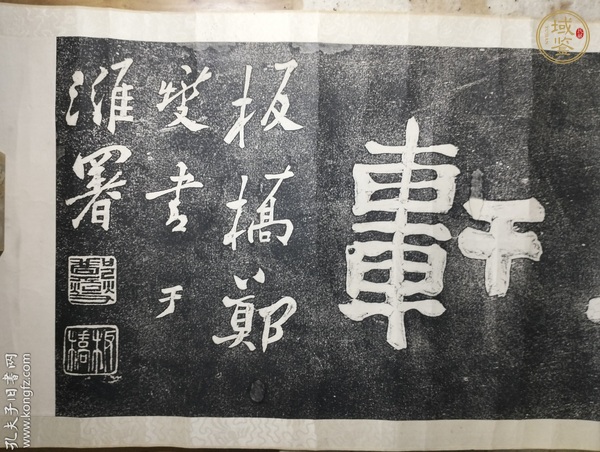 軒
板橋鄭
燮書于
濰署
鄭燮
板橋
域鉴
孔夫子旧书网
www.kongfz.com